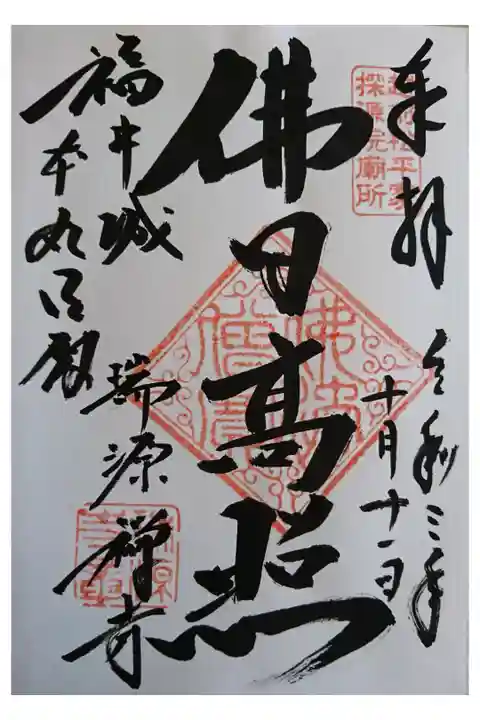 奉拝
令和三年
十月十一日
探源院廟所
佛日高照
佛法僧寶
福井城
本丸御殿
瑞源禅寺